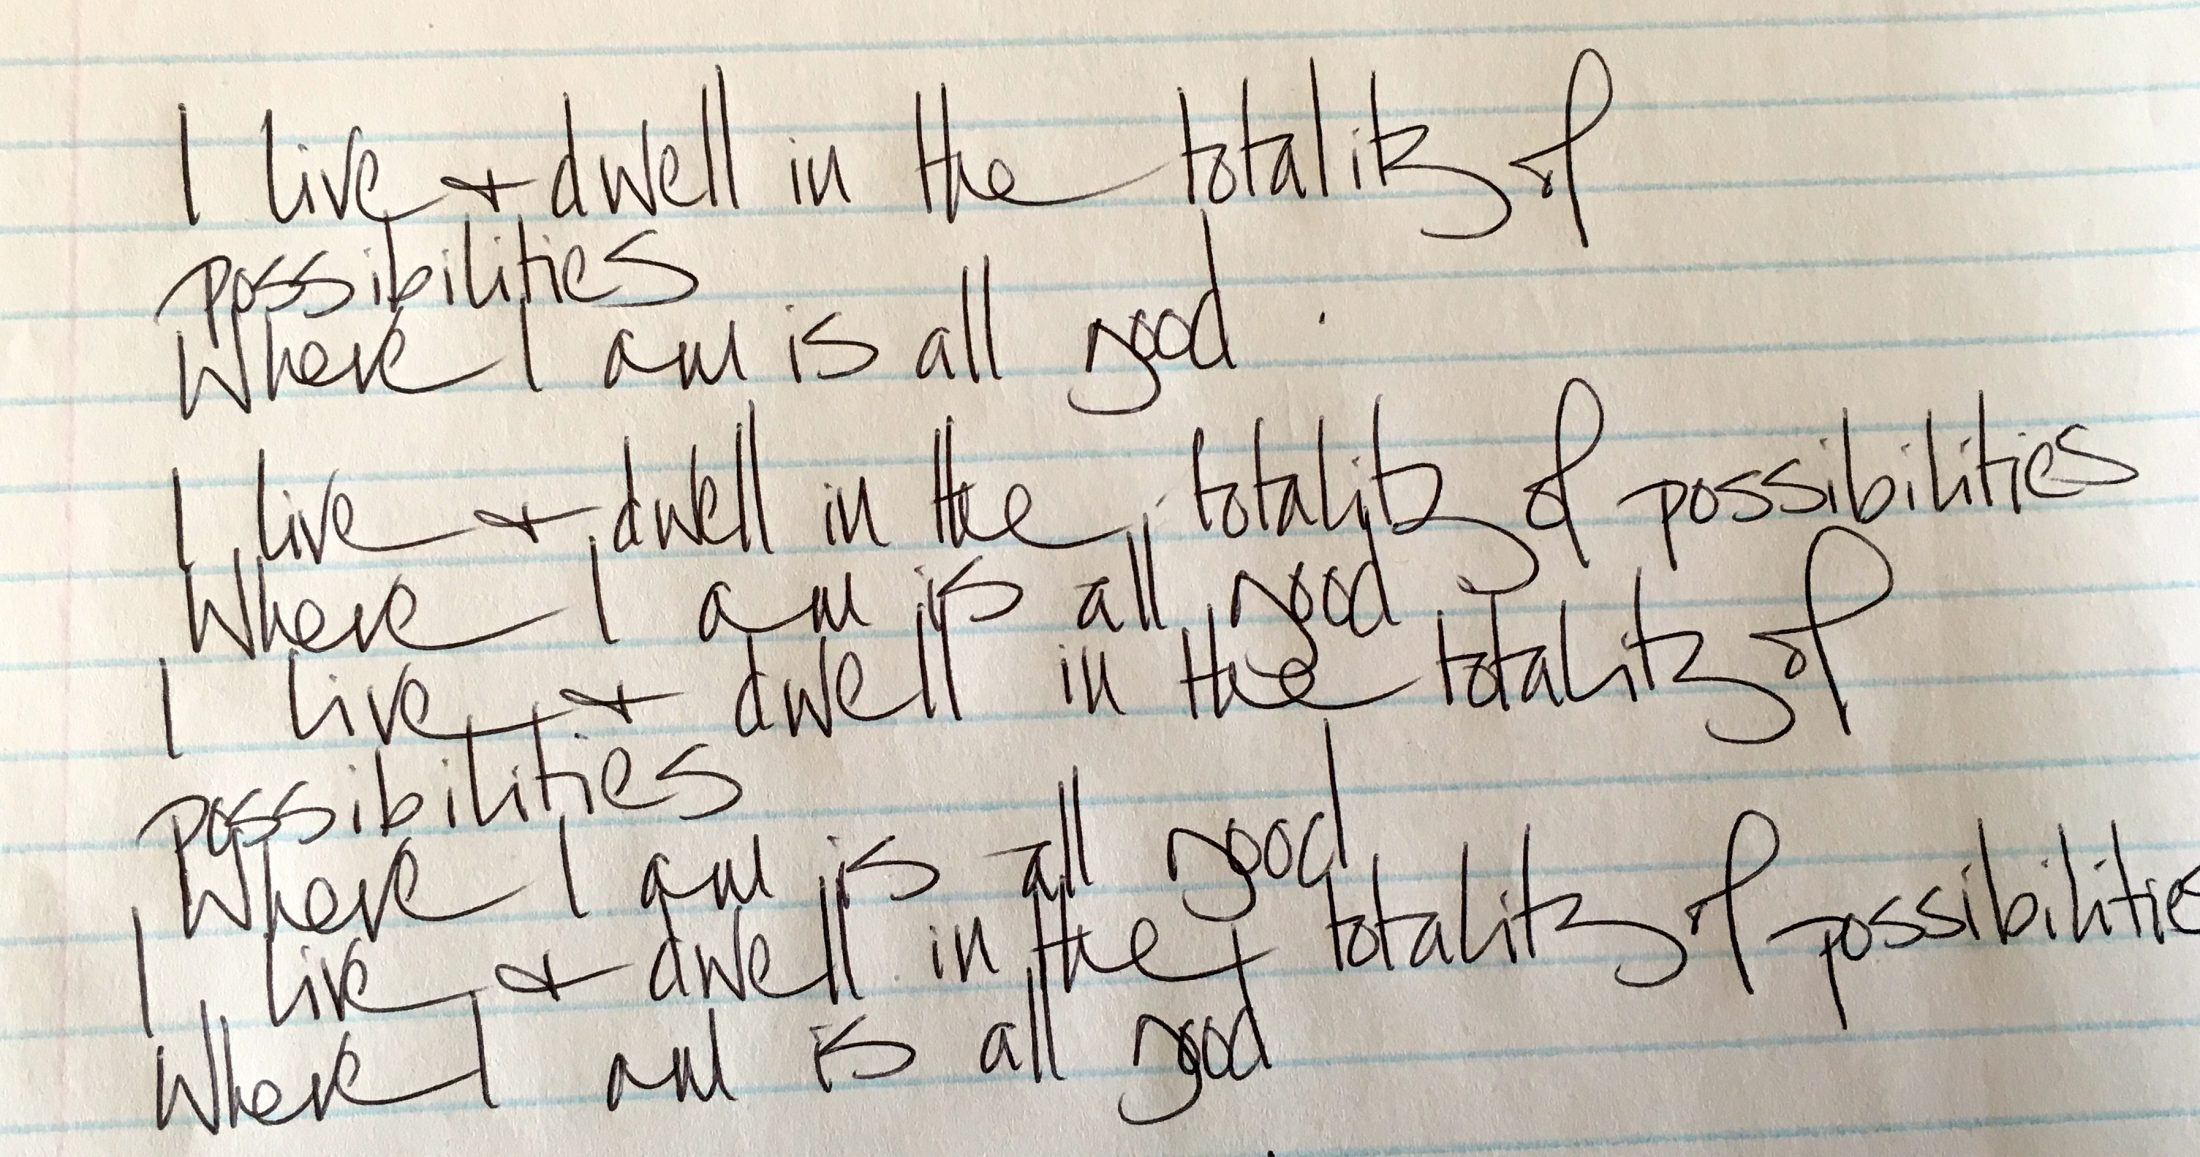 I live + dwell in the totality of
possibilities
Where I am is all good .
I live + dwell in the totality of possibilities
Where I am is all good
I live + dwell in the totality of
possibilities
Where I am is all good
I live + dwell in the totality of possibilitie
Where I am is all good